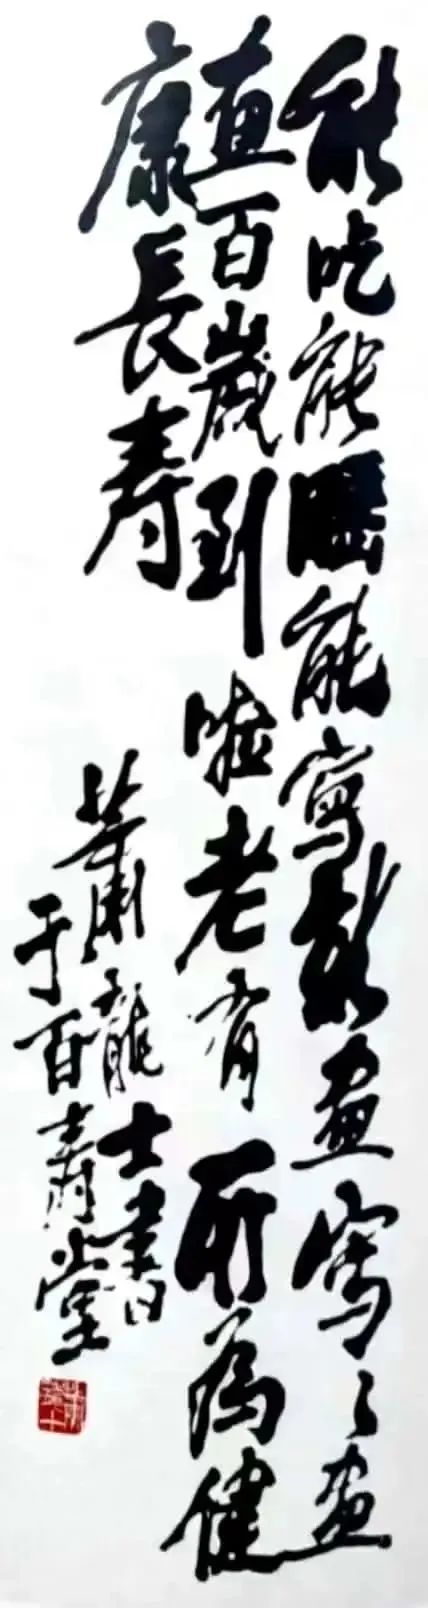 能吃能睏能寫能畫寫々畫
畫百歲到啦老有所為健
康長寿
蕭龍士書
于百寿堂